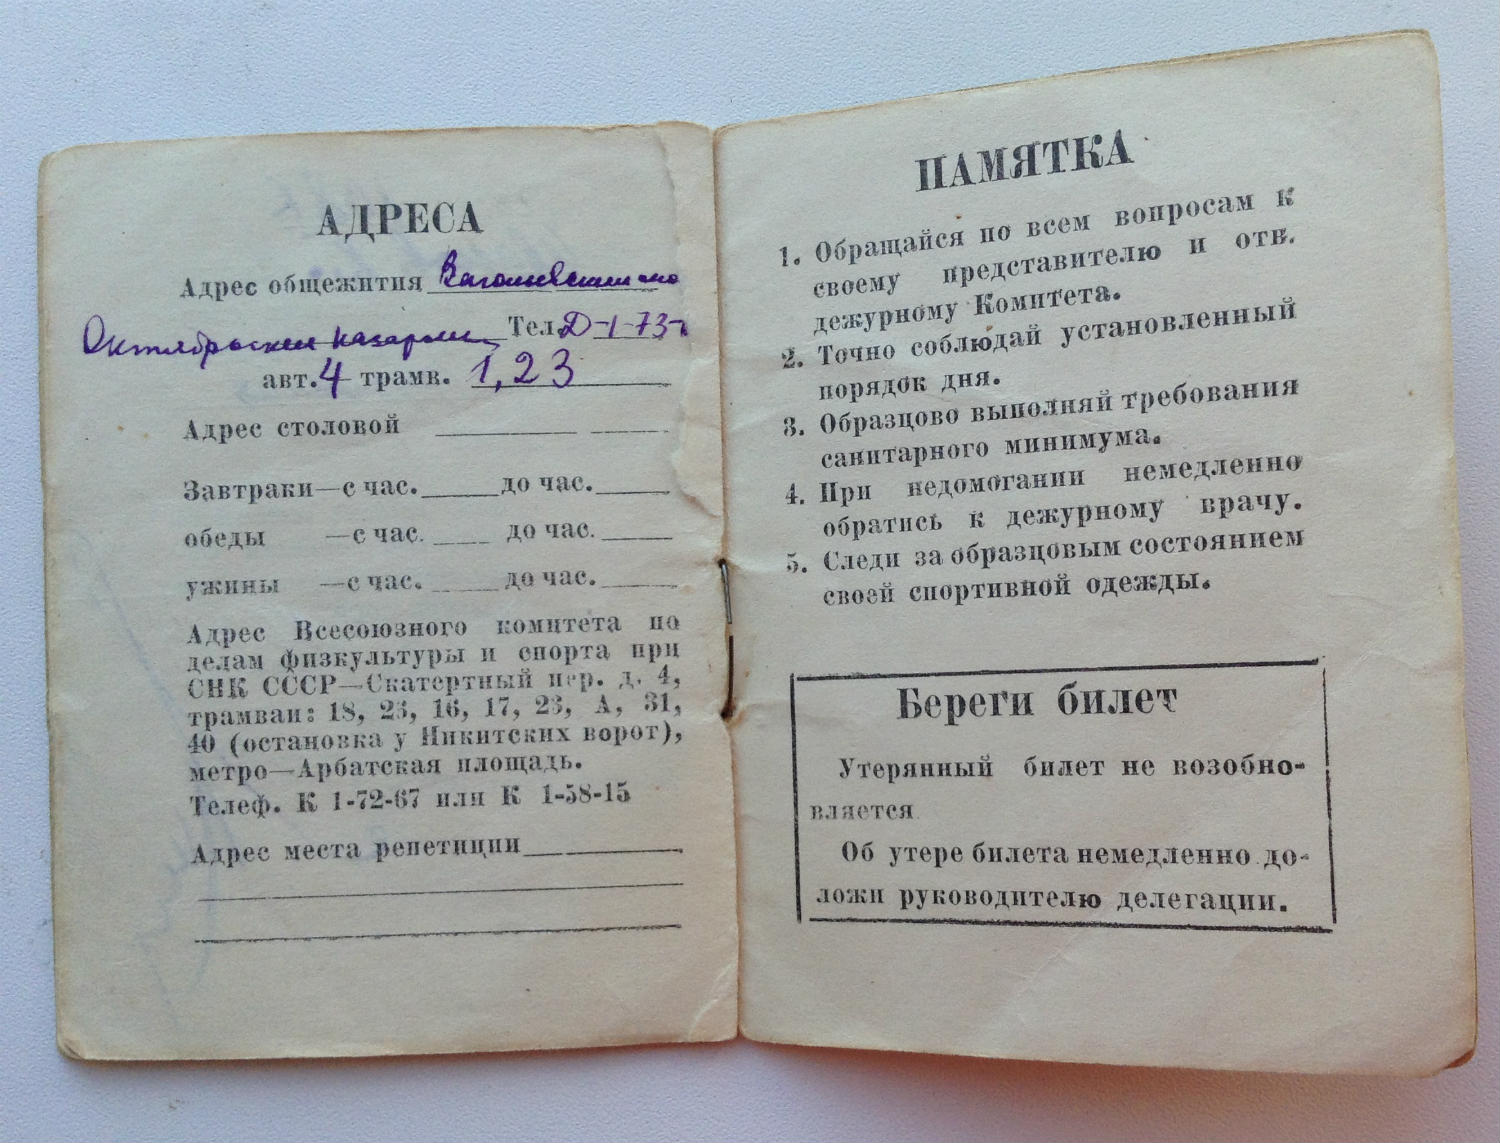 АДРЕСА
Адрес общежития
Октябрьские казармы Тел. Д-1-73-
авт. 4 трамв. 1, 23
Адрес столовой
Завтраки—с час. до час.
обеды —с час. до час.
ужины —с час. до час.
Адрес Всесоюзного комитета по
делам физкультуры и спорта при
СНК СССР—Скатертный пер. д. 4,
трамваи: 18, 23, 16, 17, 23, А, 31,
40 (остановка у Никитских ворот),
метро—Арбатская площадь.
Телеф. К 1-72-67 или К 1-58-15
Адрес места репетиции
ПАМЯТКА
1. Обращайся по всем вопросам к
своему представителю и отв.
дежурному Комитета.
2. Точно соблюдай установленный
порядок дня.
3. Образцово выполняй требования
санитарного минимума.
4. При недомогании немедленно
обратись к дежурному врачу.
5. Следи за образцовым состоянием
своей спортивной одежды.
Береги билет
Утерянный билет не возобно-
вляется.
Об утере билета немедленно до-
ложи руководителю делегации.